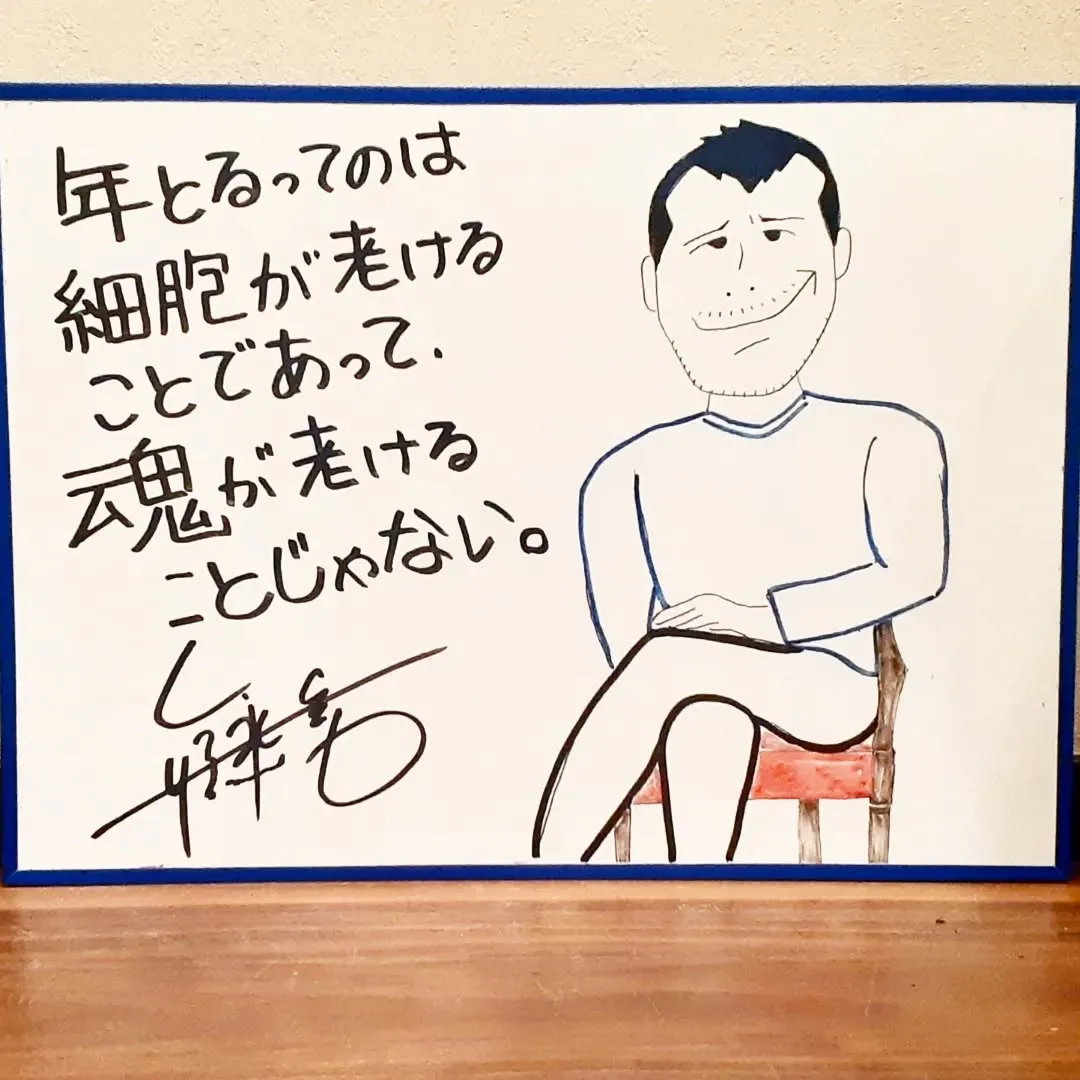 年とるってのは
細胞が老ける
ことであって.
魂が老ける
ことじゃない。